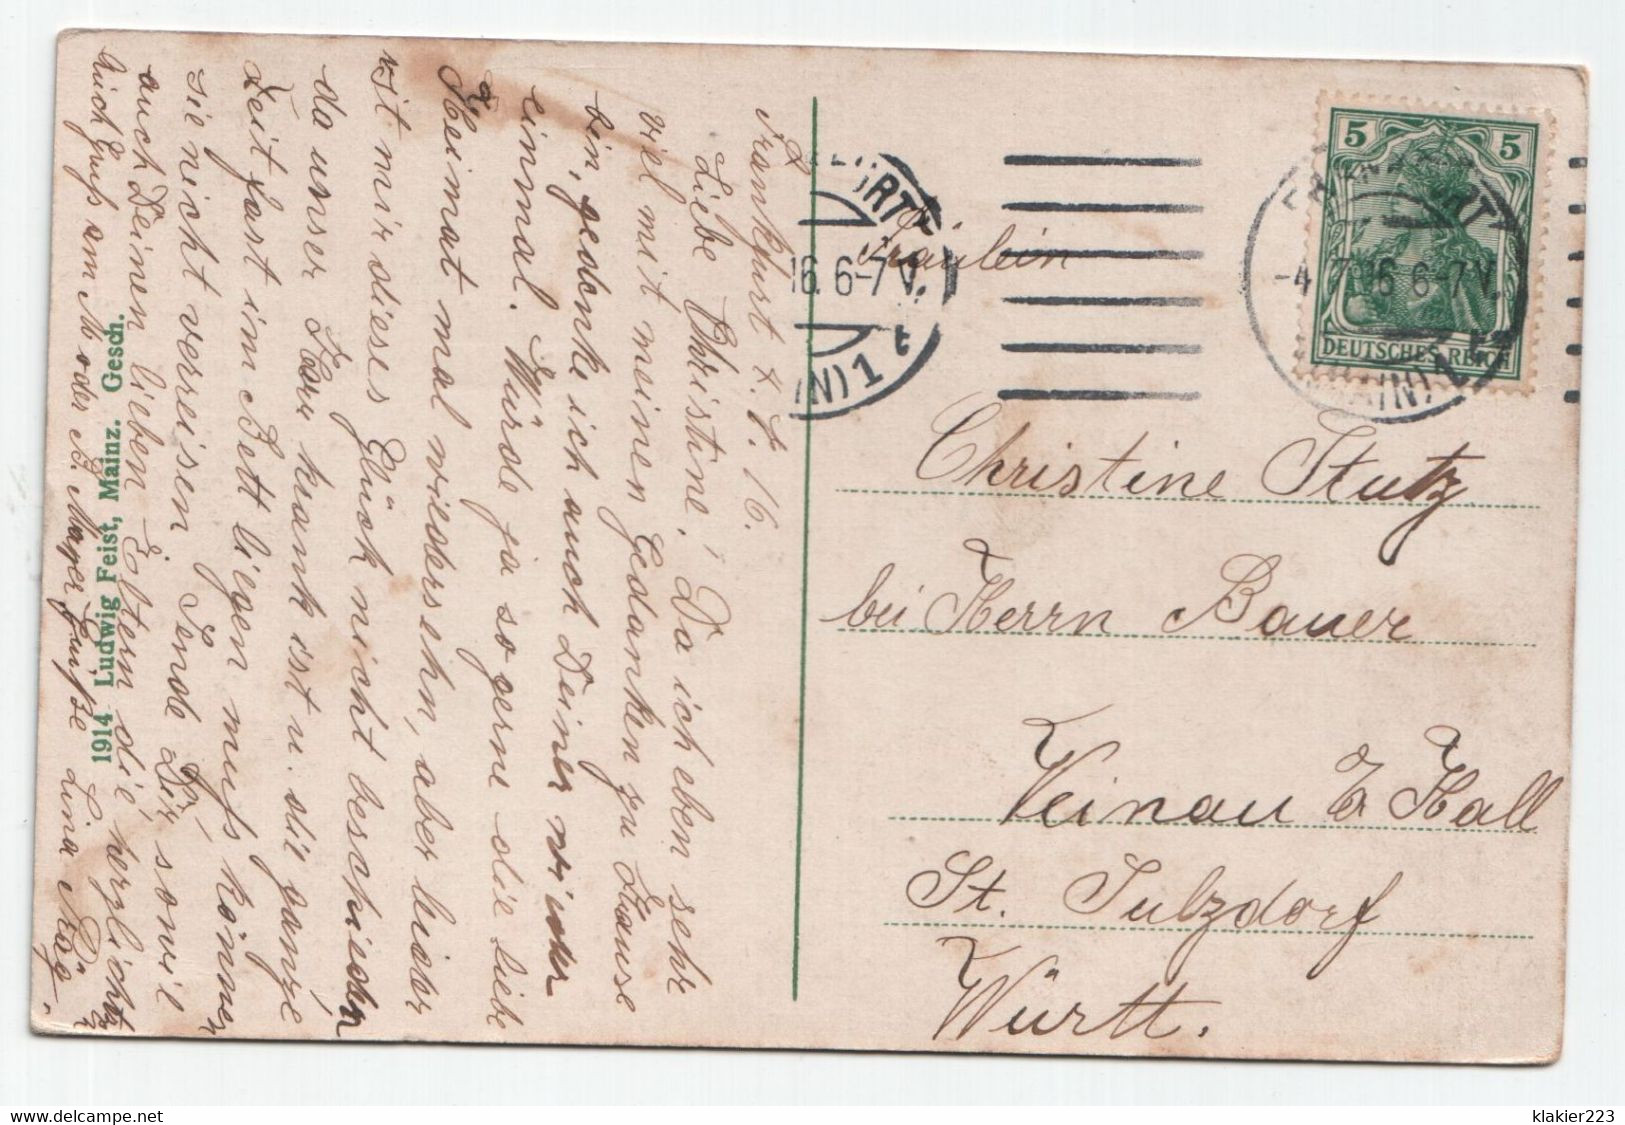 Frankfurt 4.7.16.
Liebe Christine! Da ich eben sehr
viel mit meinen Gedanken zu Hause
bin, gedenke ich auch Deiner wieder
einmal. Würde ja so gerne die liebe
Heimat mal wiedersehn, aber leider
ist mir dieses Glück nicht beschieden
da unser Herr krank ist u. die ganze
Zeit fast im Bett liegen muß, können
sie nicht verreisen. Sende Dir, sowie
auch Deinen lieben Eltern die herzlichsten
Auch Gruß am M oder A. Mayer Grüße Lina
1914 Ludwig Feist, Mainz. Gesch.
Fräulein
Christine Stutz
bei Herrn Bauer
Veinau b/ Hall
St. Sulzdorf
Württ.
5 5
DEUTSCHES REICH
FRANKFURT
-4.7.16 6-7V.
(MAIN) 1
FURT
16. 6-7V.
IN) 1
t
delcampe.net
klakier223